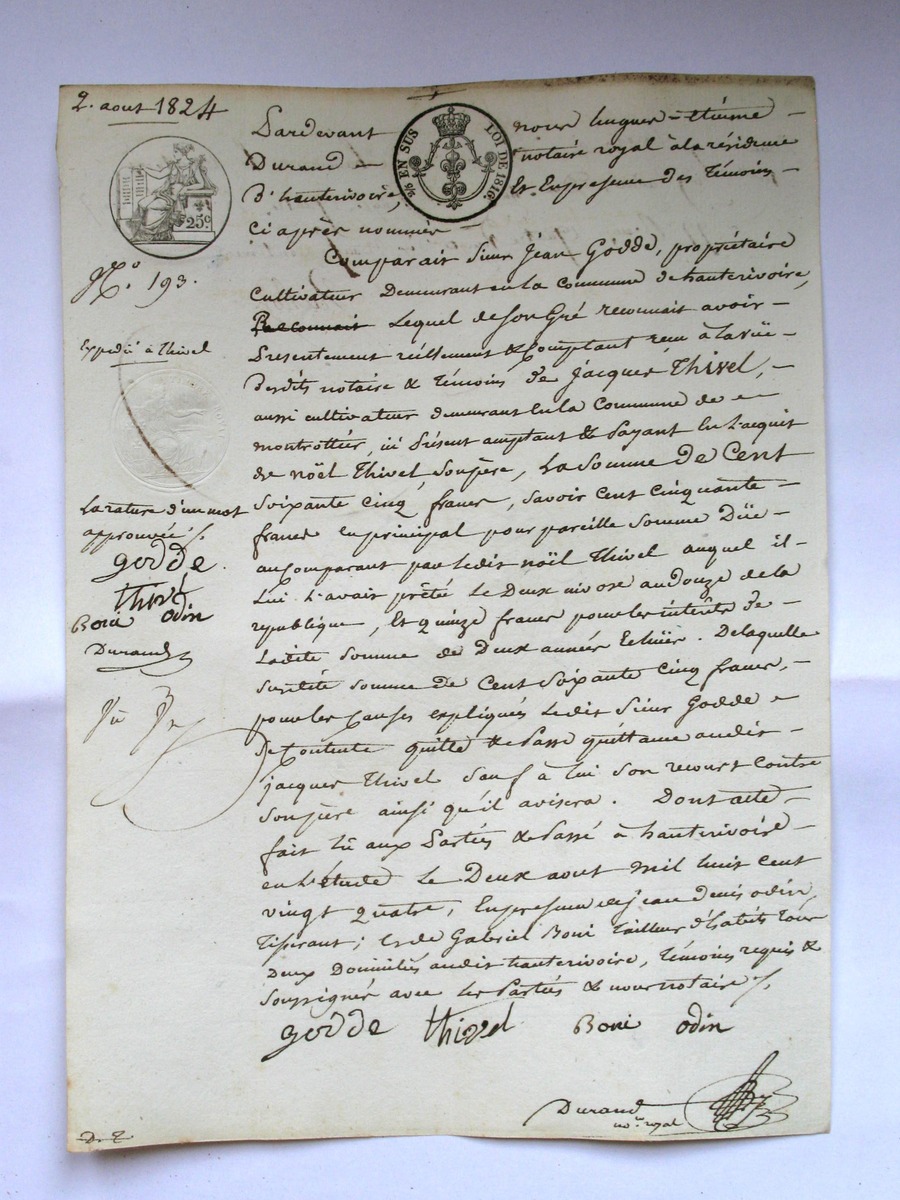 2. aout 1824
25c
N.o 193.
Expedié à thivel
La rature d'un mot
approuvée /.
godde.
thivel
Boni odin
Durand
EN SUS LOI DE 1816
Pardevant nous hugues = étienne =
Durand = notaire royal à la résidence
D'hauterivoire, Et En presence Des Témoins =
Ci après nommés =
Comparait Sieur Jean Godde, propriétaire
Cultivateur Demeurant en La commune de hauterivoire,
Reconnait Lequel de Son Gré reconnait avoir =
Presentement réellement & Comptant reçu à la vüe =
desdits notaire & témoins de Jacques Thivel, =
aussi cultivateur demeurant En La Commune de =
montrottier, ici présent comptant & Payant En L'acquit
de noël Thivel, Son père, La Somme De Cent
Soixante cinq francs, savoir cent cinquante =
francs en principal pour pareille Somme Düe =
au Comparant par Ledit noël Thivel auquel il =
Lui L'avait prêté Le Deux nivose an douze de la
republique, Et quinze francs pour les intérêts de =
Ladite Somme de Deux années Echües. De laquelle
Susdite somme de Cent Soixante Cinq francs, =
pour les Causes expliqués Ledit Sieur Godde =
Se Contente quitte & Passe quittance audit =
jacques Thivel Sauf à lui Son recours Contre
Son père ainsi qu'il avisera. Dont acte =
fait lû aux Parties & Passé à hauterivoire =
en L'étude Le Deux aout mil huit cent
vingt quatre, En presence de jean denis odin,
Tisserant; Et de Gabriel Boni Tailleur d'habits Tous
Deux Domiciliés audit hauterivoire, Témoins requis &
Soussignés avec Les Parties & nous notaire /.
godde thivel Boni odin
Durand
no.re royal
D. E